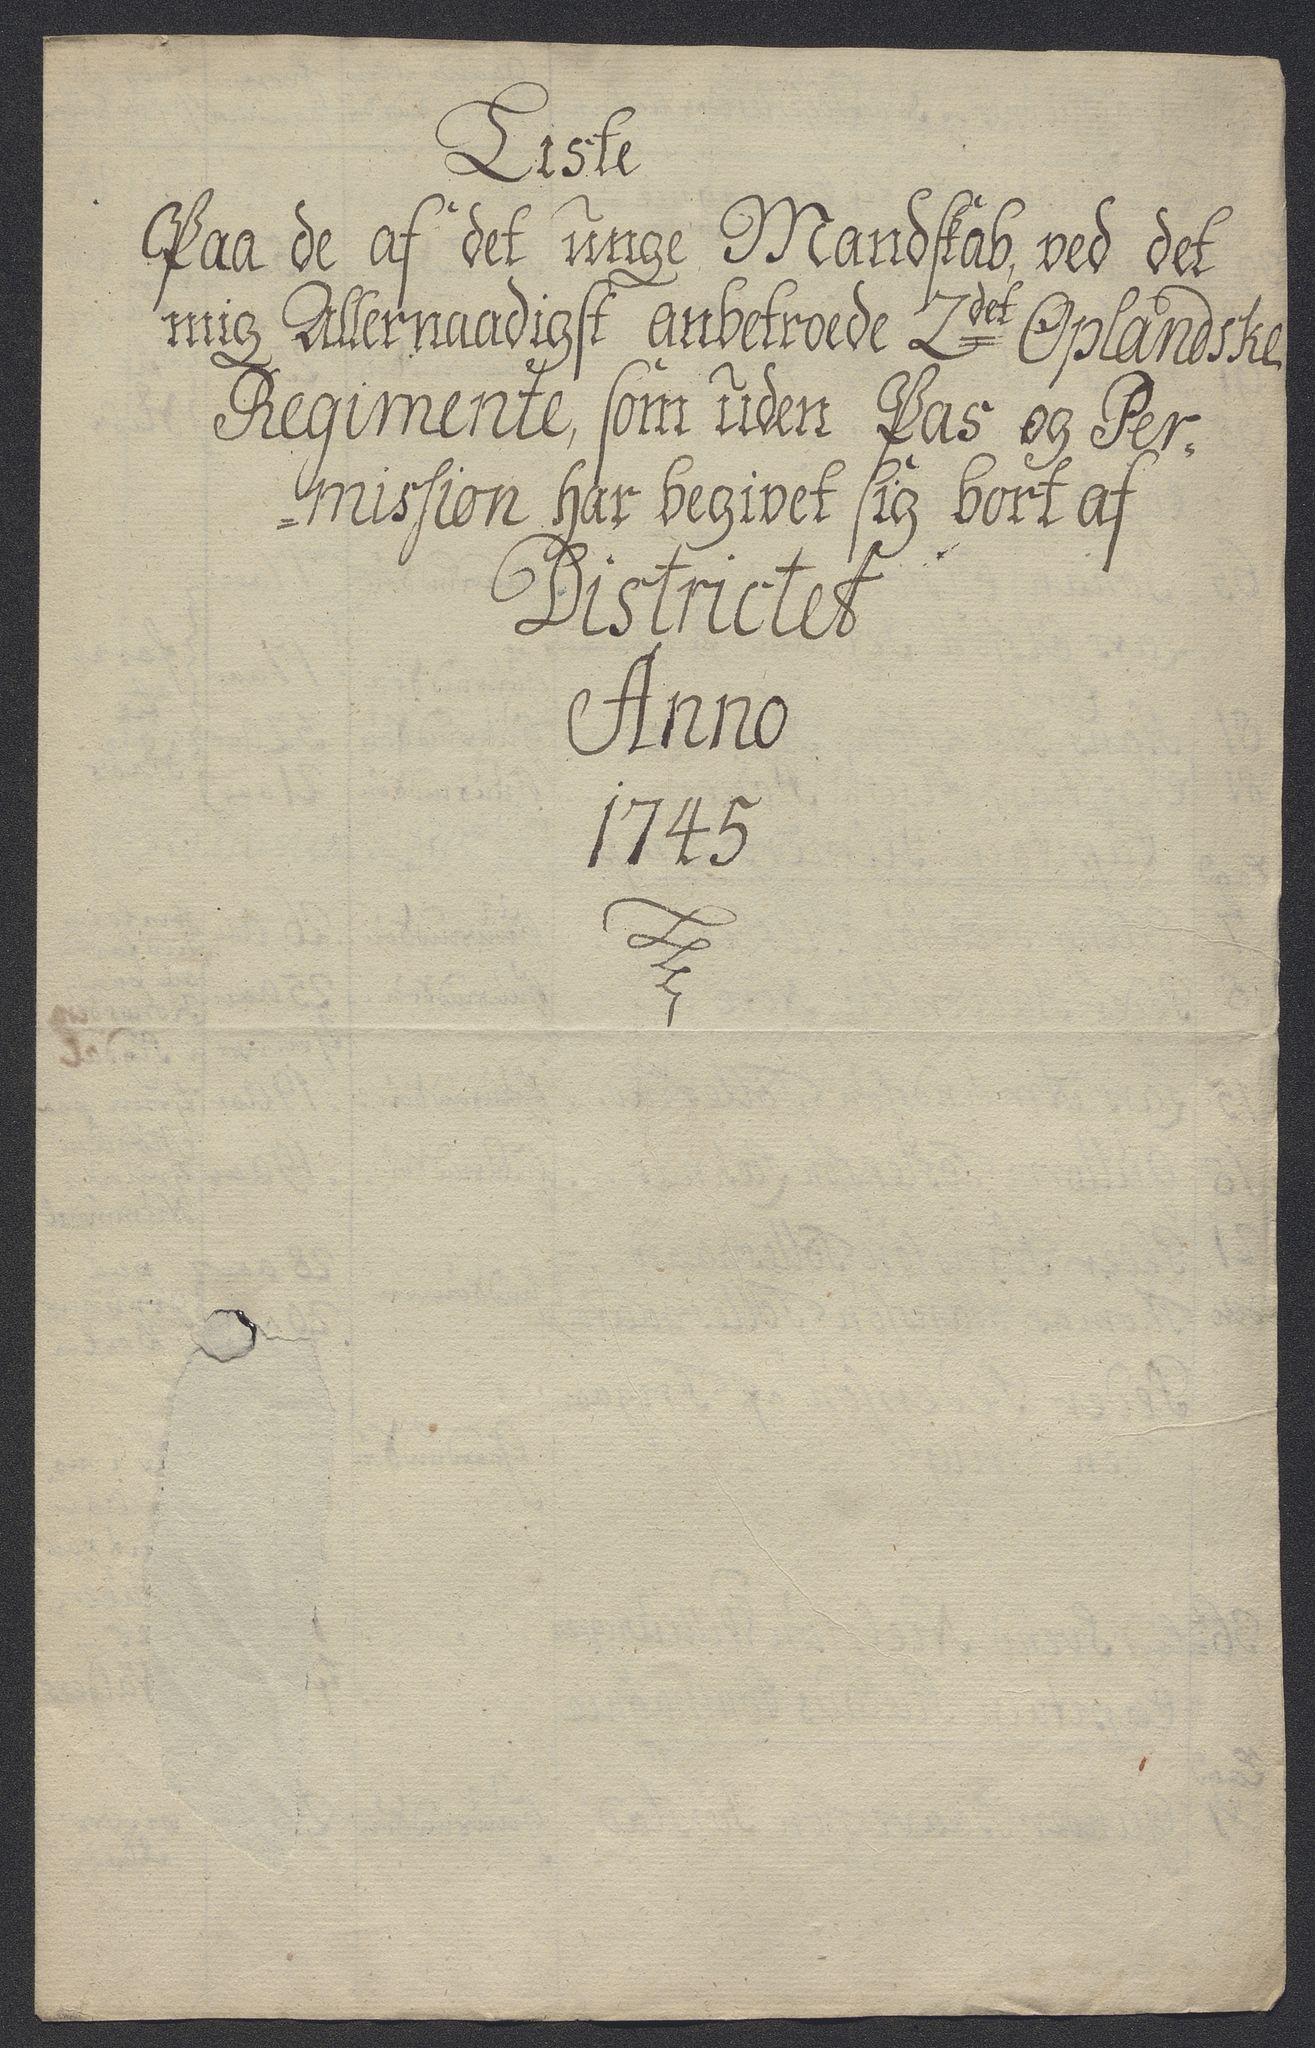 Liste
Paa de af det unge Mandskab, ved det
mig Allernaadigst anbetroede 2det Oplandske
Regimente, som uden Pas og Per-
=mission har begivet sig bort af
Districtet
Anno
1745